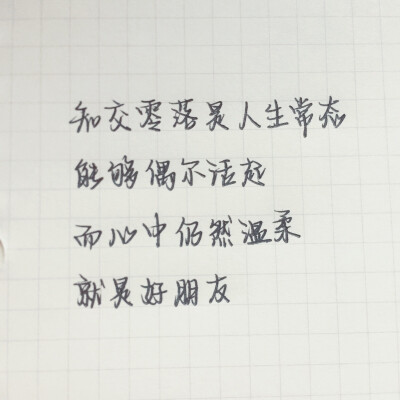 知交零落是人生常态
能够偶尔话起
而心中仍然温柔
就是好朋友